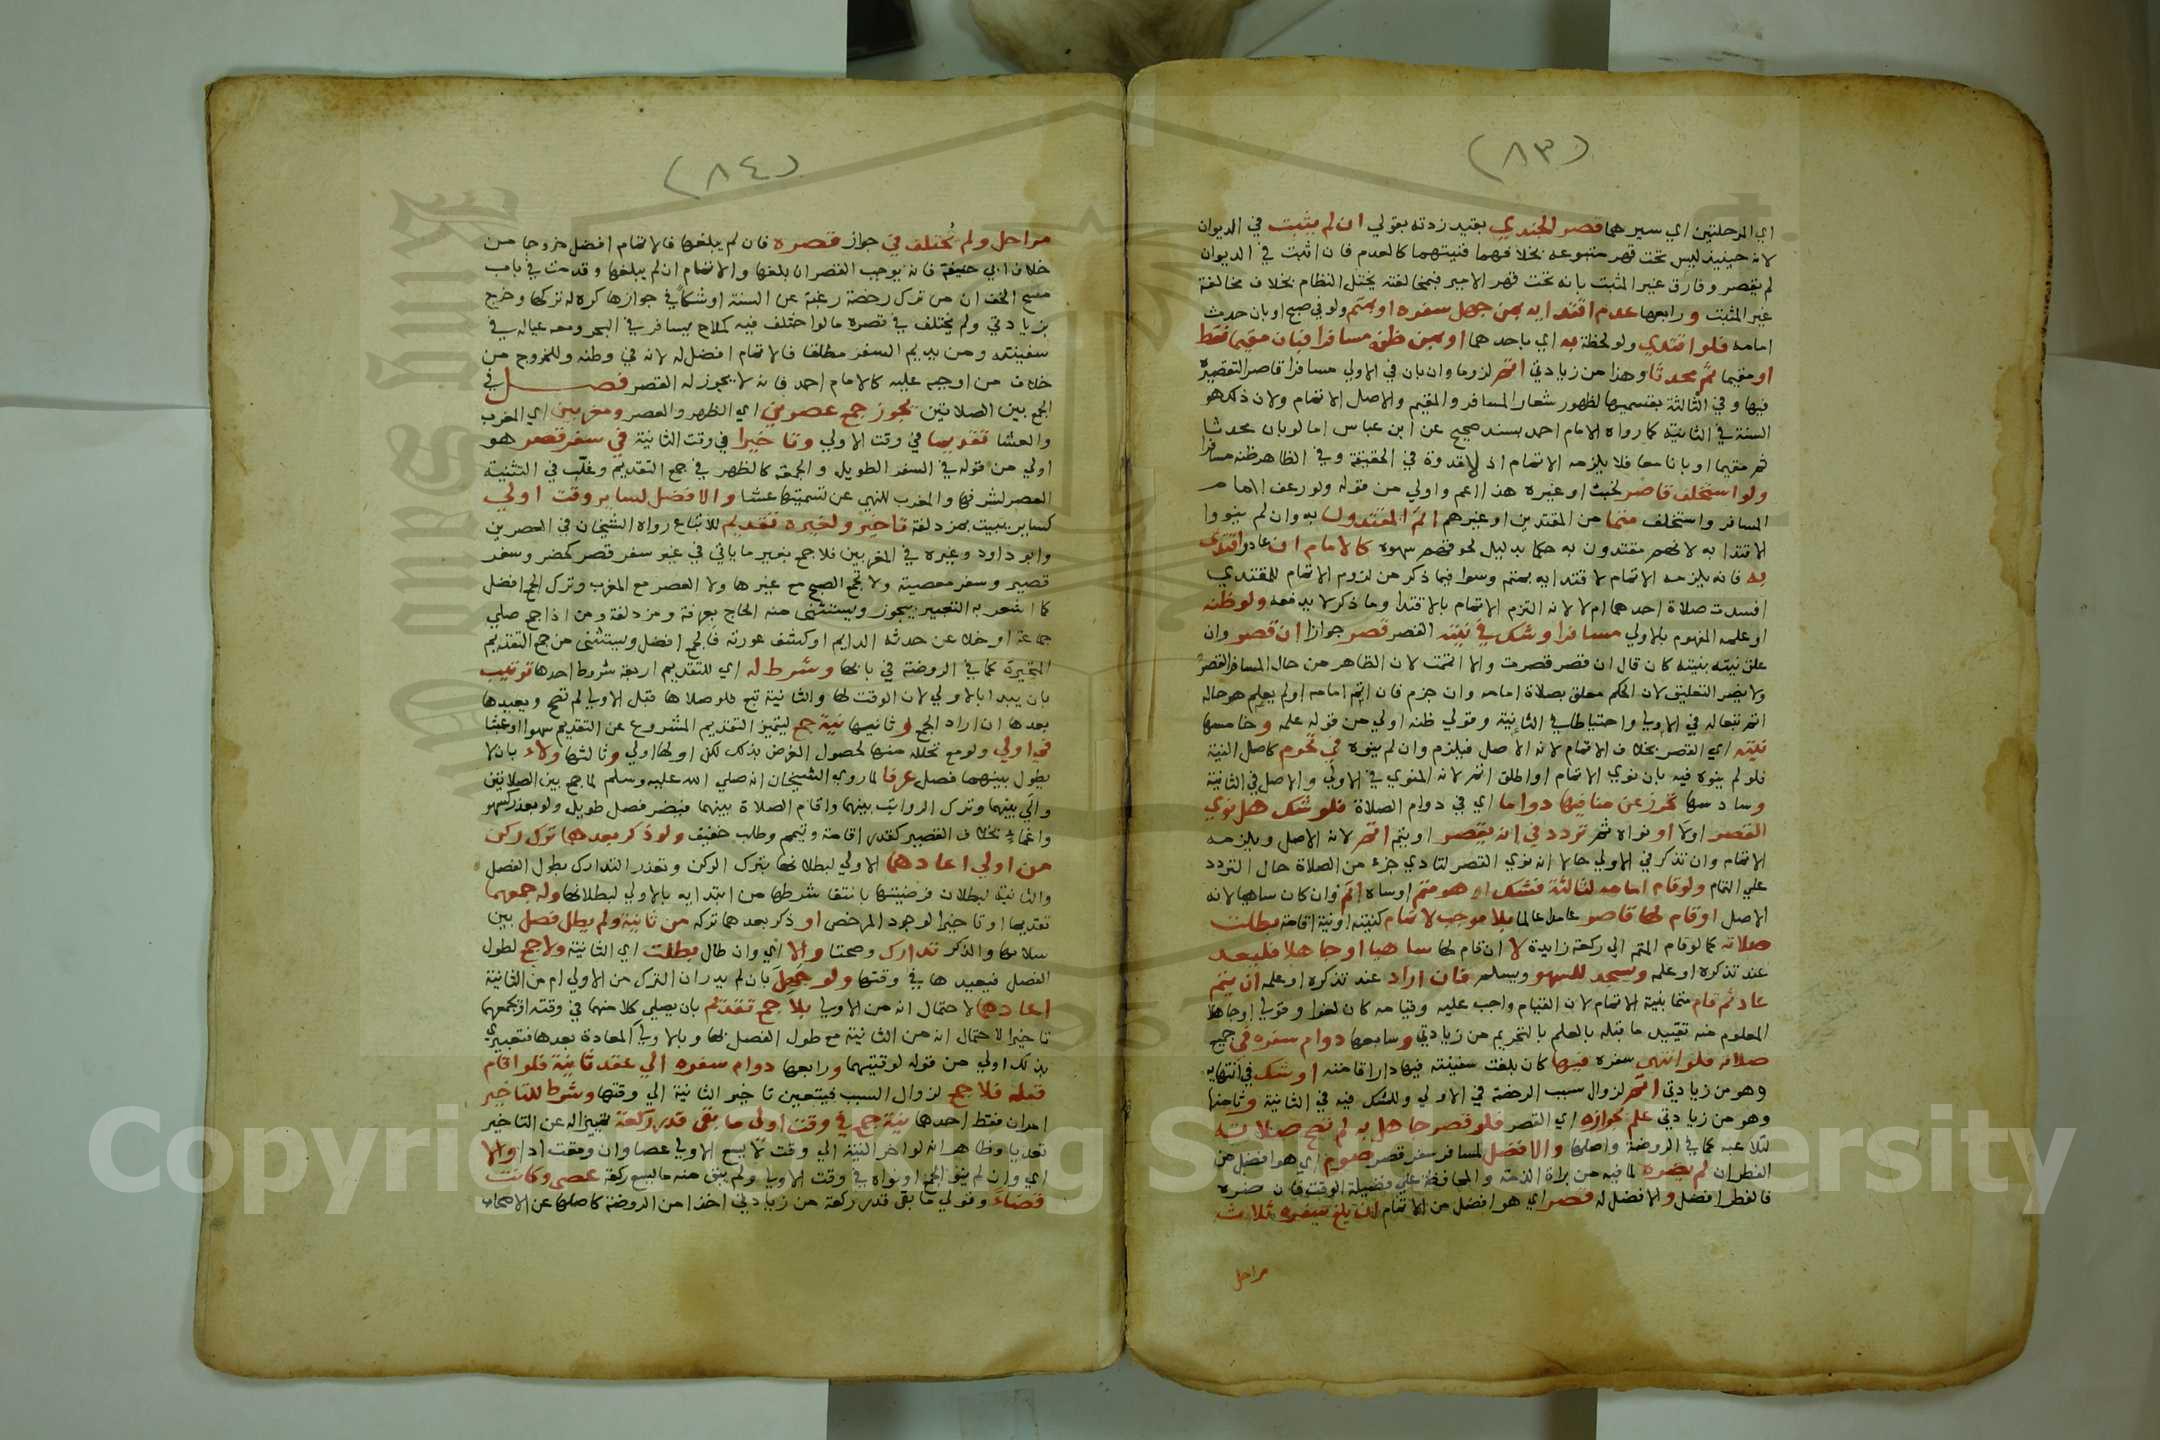 (٨٣)
اي المرحلتين اي سيرهما قصر الجندي بقيد زدته بقولي ان لم يثبت في الديوان
لانه حينيذ ليس تحت قهر متبوعه بخلافهما فنيتهما كالعدم فان اثبت في الديوان
لم يقصر وفارق غير المثبت بانه تحت قهر الامير فبمخالفته يختل النظام بخلاف مخالفة
غير المثبت ورابعها عدم اقتدايه بمن جهل سفره او بمتم ولو في صبح او بان حدث
امامه فلو اقتدي ولو لحظة به اي باحدهما او بمن ظنه مسافرا فبان مقيما فقط
او مقيما ثم محدثا وهذا من زيادتي اتم لزوما وان بان في الاولي مسافرا قاصرا لتقصيره
فيها وفي الثالثة بقسميها لظهور شعار المسافر والمقيم والاصل الاتمام ولان ذلك هو
السنة في الثانية كما رواه الامام احمد بسند صحيح عن ابن عباس اما لو بان محدثا
ثم مقيما او بانا معا فلا يلزمه الاتمام اذ لا قدوة في الحقيقة وفي الظاهر ظنه مسافرا
ولو استخلف قاصر لخبث او غيره هذا اعم واولي من قوله ولو رعف الامام
المسافر واستخلف متما من المقتدين او غيرهم اتم المقتدون به وان لم ينووا
الاقتدا به لانهم مقتدون به حكما بدليل لحوقهم سهوه كالامام ان عاد واقتدي
به فانه يلزمه الاتمام لاقتدايه بمتم وسوا فيما ذكر من لزوم الاتمام للمقتدي
افسدت صلاة احدهما ام لا لانه التزم الاتمام بالاقتدا وما ذكر لا يدفعه ولو ظنه
او علمه المفهوم بالاولي مسافرا وشك في نيته القصر قصر جوازا ان قصر وان
علق نيته بنيته كان قال ان قصر قصرت والا اتممت لان الظاهر من حال المسافر القصر
ولا يضر التعليق لان الحكم معلق بصلاة امامه وان جزم فان اتم امامه او لم يعلم هو حاله
اتم تبعا له في الاولي واحتياطا في الثانية وقولي ظنه اولي من قوله علمه وخامسها
نيته اي القصر بخلاف الاتمام لانه الاصل فيلزم وان لم ينوه في تحرم كاصل النية
فلو لم ينوه فيه بان نوي الاتمام او اطلق اتم لانه المنوي في الاولي والاصل في الثانية
وسادسها تحرز عن منافيها دواما اي في دوام الصلاة فلو شك هل نوي
القصر اولا او نواه ثم تردد في انه يقصر او يتم اتم لانه الاصل ويلزمه
الاتمام وان تذكر في الاولي حالا انه نوي القصر لتادي جزء من الصلاة حال التردد
علي التمام ولو قام امامه لثالثة فشك اهو متم او ساه اتم وان كان ساهيا لانه
الاصل او قام لها قاصر عامدا عالما بلا موجب لاتمام كنيته او نية اقامة بطلت
صلاته كما لو قام المتم الي ركعة زايدة لا ان قام لها ساهيا او جاهلا فليعد
عند تذكره او علمه ويسجد للسهو ويسلم فان اراد عند تذكره او علمه ان يتم
عاد ثم قام متما بنية الاتمام لان القيام واجب عليه وقيامه كان لغوا وقولي او جاهلا
المعلوم منه تقييد ما قبله بالعلم بالتحريم من زيادتي وسابعها دوام سفره في جميع
صلاته فلو انتهي سفره فيها كان بلغت سفينته فيها دار اقامته او شك في انتهايه
وهو من زيادتي اتم لزوال سبب الرخصة في الاولي وللشك فيه في الثانية وثامنها
وهو من زيادتي علم بجوازه اي القصر فلو قصر جاهل به لم تصح صلاته
لتلاعبه كما في الروضة واصلها والافضل لمسافر سفر قصر صوم اي هو افضل من
الفطر ان لم يضره لما فيه من براة الذمة والمحافظة علي فضيلة الوقت فان ضره
فالفطر افضل والافضل له قصر اي هو افضل من الاتمام ان بلغ سفره ثلاث
مراحل
(٨٤)
مراحل ولم يختلف في جواز قصره فان لم يبلغها فالاتمام افضل خروجا من
خلاف ابي حنيفة فانه يوجب القصر ان بلغها والاتمام ان لم يبلغها وقدمت في باب
مسح الخف ان من ترك رخصة رغبة عن السنة او شكا في جوازها كره له تركها وخرج
بزيادتي ولم يختلف في قصره ما لو اختلف فيه كملاح يسافر في البحر ومعه عياله في
سفينته ومن يديم السفر مطلقا فالاتمام افضل له لانه في وطنه وللخروج من
خلاف من اوجبه عليه كالامام احمد فانه لا يجوز له القصر فصل في
الجمع بين الصلاتين يجوز جمع عصرين اي الظهر والعصر ومغربين اي المغرب
والعشا تقديما في وقت الاولي وتاخيرا في وقت الثانية في سفر قصر هو
اولي من قوله في السفر الطويل والجمعة كالظهر في جمع التقديم وغلب في التثنية
العصر لشرفها والمغرب للنهي عن تسميتها عشا والافضل لساير وقت اولي
كساير يبيت بمزدلفة تاخير ولغيره تقديم للاتباع رواه الشيخان في العصرين
وابو داود وغيره في المغربين فلا جمع بغير ما ياتي في غير سفر قصر كحضر وسفر
قصير وسفر معصية ولا تجمع الصبح مع غيرها ولا العصر مع المغرب وترك الجمع افضل
كما اشعر به التعبير بيجوز ويستثنى منه الحاج بعرفة ومزدلفة ومن اذا جمع صلي
جماعة او خلا عن حدثه الدايم او كشف عورته فالجمع افضل ويستثنى من جمع التقديم
المتحيرة كما في الروضة في بابها وشرط له اي للتقديم اربعة شروط احدها ترتيب
بان يبدا بالاولي لان الوقت لها والثانية تبع فلو صلاها قبل الاولي لم تصح ويعيدها
بعدها ان اراد الجمع وثانيها نية جمع ليتميز التقديم المشروع عن التقديم سهوا او عبثا
في اولي ولو مع تحلله منها لحصول الغرض بذلك لكن اولها اولي وثالثها ولاء بان لا
يطول بينهما فصل عرفا لما روي الشيخان انه صلي الله عليه وسلم لما جمع بين الصلاتين
والي بينهما وترك الرواتب بينهما واقام الصلاة بينهما فيضر فصل طويل ولو بعذر كسهو
واغماء بخلاف القصير كقدر اقامة وتيمم وطلب خفيف ولو ذكر بعدهما ترك ركن
من اولي اعادهما الاولي لبطلانها بترك الركن وتعذر التدارك بطول الفصل
والثانية لبطلان فرضيتها بانتفا شرطها من ابتدايه بالاولي لبطلانها وله جمعهما
تقديما او تاخيرا لوجود المرخص او ذكر بعدهما تركه من ثانية ولم يطل فصل بين
سلامها والذكر تدارك وصحتا والا اي وان طال بطلت اي الثانية ولا جمع لطول
الفصل فيعيدها في وقتها ولو جهل بان لم يدر ان الترك من الاولي ام من الثانية
اعادهما لاحتمال انه من الاولي بلا جمع تقديم بان يصلي كلا منهما في وقته او يجمعهما
تاخيرا لاحتمال انه من الثانية مع طول الفصل بها وبالاولي المعادة بعدها فتعبيري
بذلك اولي من قوله لوقتيهما ورابعها دوام سفره الي عقد ثانية فلو اقام
قبله فلا جمع لزوال السبب فيتعين تاخير الثانية الي وقتها وشرط للتاخير
امران فقط احدهما نية جمع في وقت اولي ما بقي قدر ركعة تمييزا له عن التاخير
تعديا وظاهر انه لو اخر النية الي وقت لا يسع الاولي عصا وان وقعت ادا والا
اي وان لم ينو الجمع او نواه في وقت الاولي ولم يبق منه ما يسع ركعة عصى وكانت
قضاء وقولي ما بقي قدر ركعة من زيادتي اخذا من الروضة كاصلها عن الاصحاب